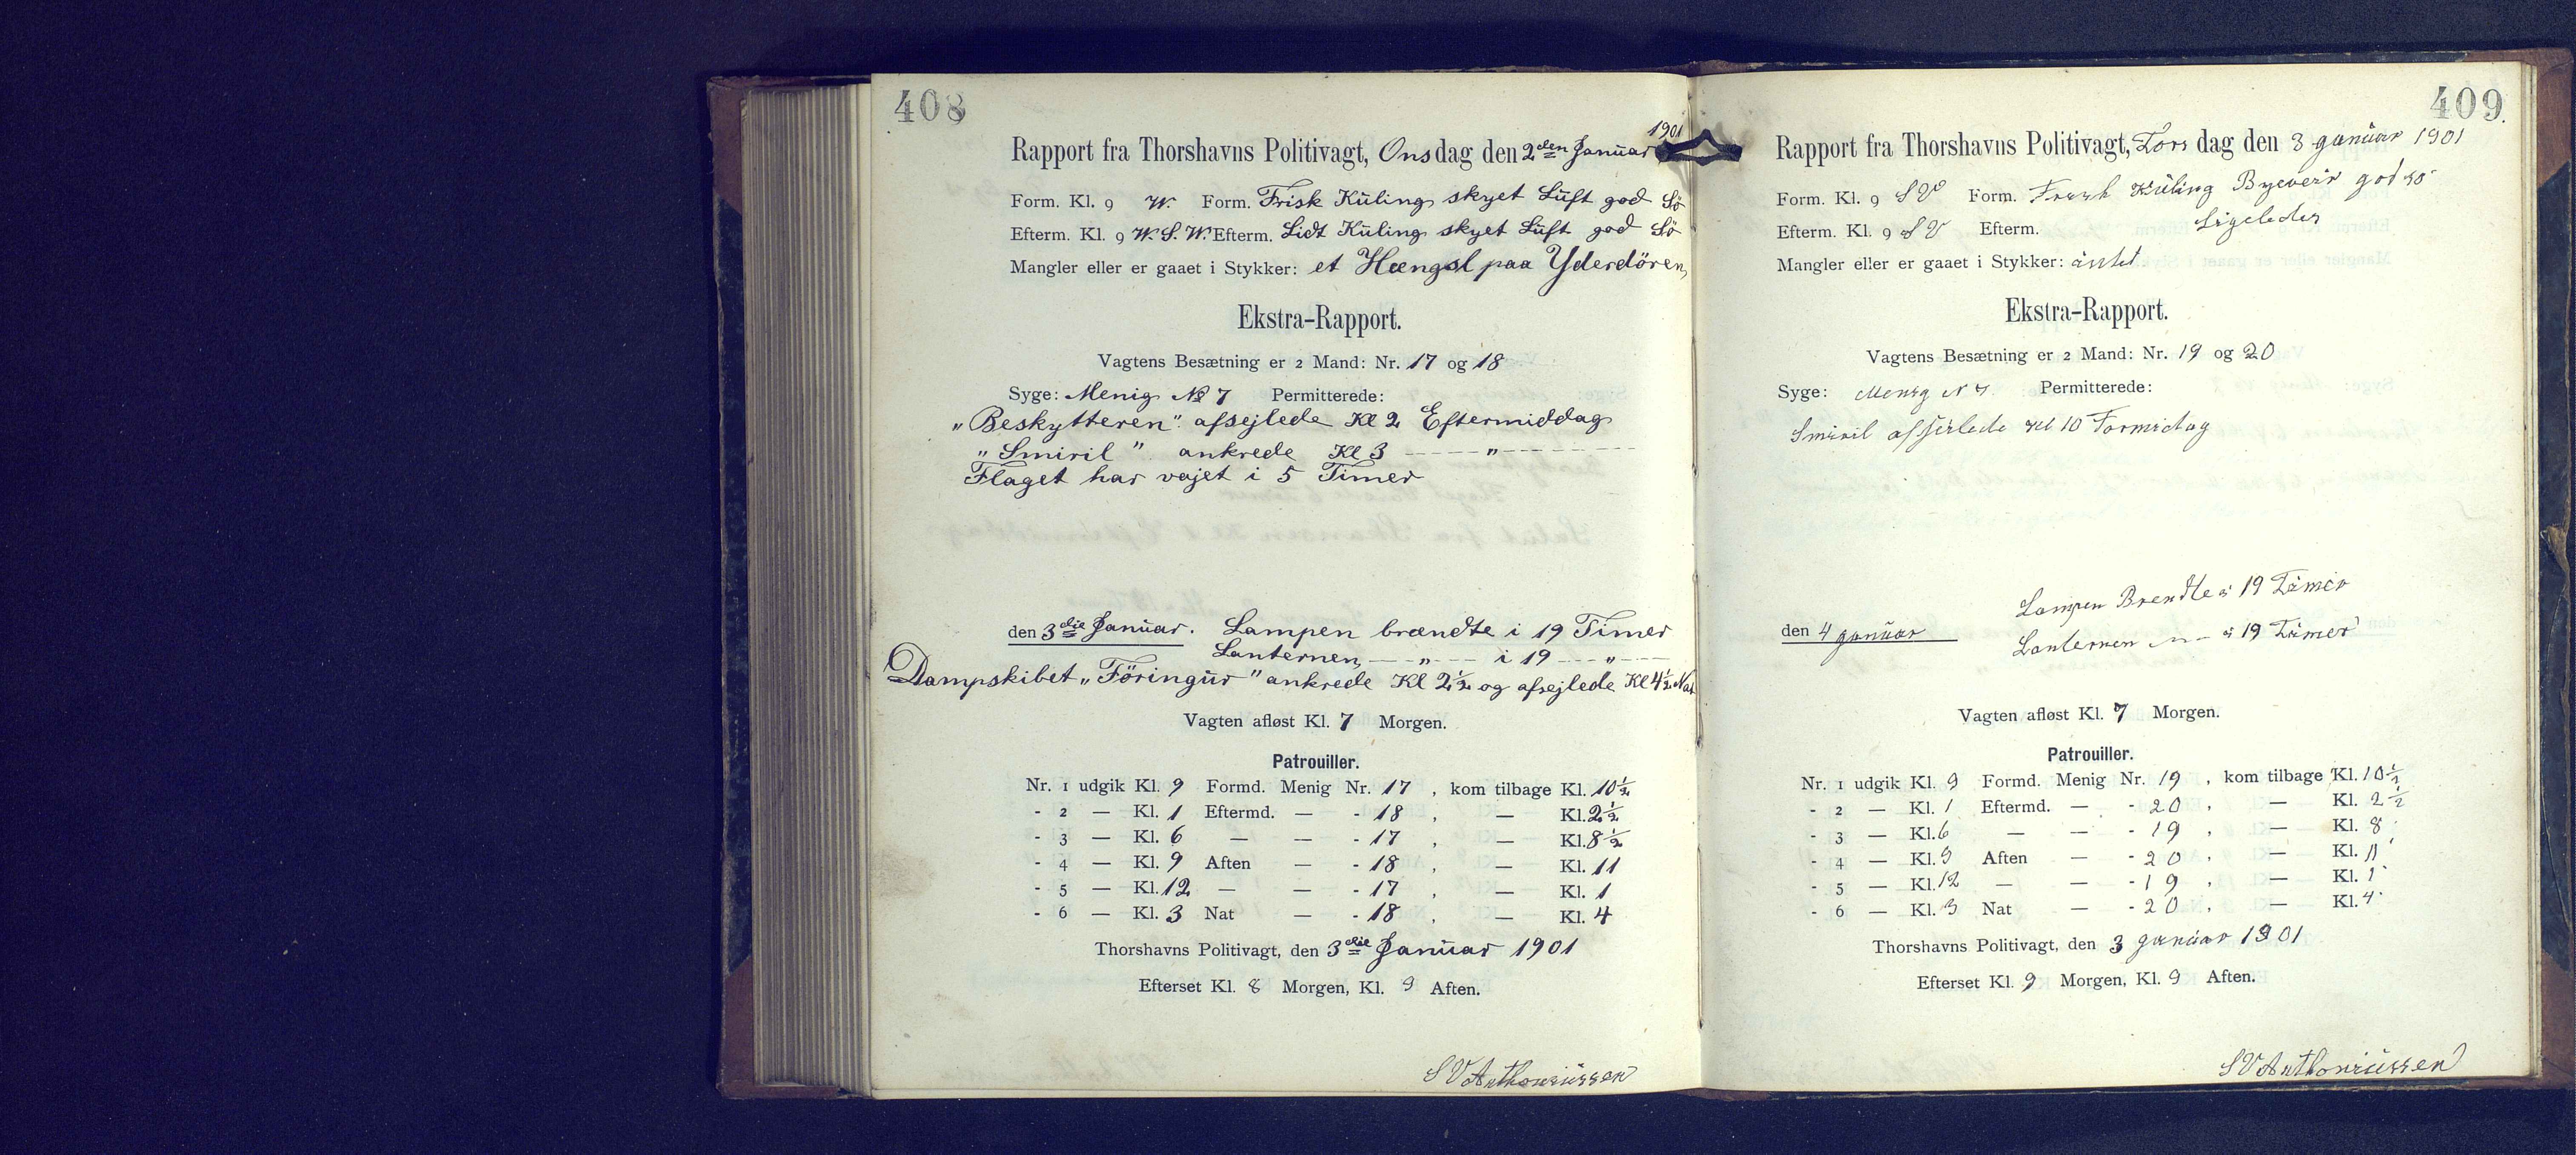 408
1901
Rapport fra Thorshavns Politivagt, Onsdag den 2den Januar
Form. Kl. 9 W. Form. Frisk Kuling skyet Luft god Sö
Efterm. Kl. 9 W. S. W. Efterm. Lidt Kuling skyet Luft god Sö
Mangler eller er gaaet i Stykker: et Hængsl paa Yderdören,
Ekstra-Rapport.
Vagtens Besætning er 2 Mand: Nr. 17 og 18
Syge: Menig No 7 Permitterede:
„Beskytteren". afsejlede Kl 2 Eftermiddag
„Smiril" ankrede Kl 3 — „ —
Flaget har vajet i 5 Timer
den 3die Januar. Lampen brændte i 19 Timer
Lanternen, — „ — i 19 — „ —
Dampskibet „Föringur" ankrede Kl 2½ og afsejlede Kl 4½ Nat
Vagten afløst Kl. 7 Morgen.
Patrouiller.
Nr. 1 udgik Kl. 9 Formd. Menig Nr. 17 , kom tilbage Kl. 10½
- 2 — Kl. 1 Eftermd. — - 18 , — Kl. 2½
- 3 — Kl. 6 — — - 17 , — Kl. 8½
- 4 — Kl. 9 Aften — - 18 , — Kl. 11
- 5 — Kl. 12 — — - 17 , — Kl. 1
- 6 — Kl. 3 Nat — - 18 , — Kl. 4
Thorshavns Politivagt, den 3die Januar 1901
Efterset Kl. 8 Morgen, Kl. 9 Aften.
SVAnthoniussen
409
Rapport fra Thorshavns Politivagt, Tors dag den 3 januar 1901
Form. Kl. 9 SV Form. Fresk Kuling Byeveir god sö
Efterm. Kl. 9 SV Efterm. Ligeledes
Mangler eller er gaaet i Stykker: intet
Ekstra-Rapport.
Vagtens Besætning er 2 Mand: Nr. 19 og 20
Syge: Menig N 7 Permitterede:
Smiril afseilede Kl 10 Formidag
den 4 januar Lampen Brendte i 19 Timer
Lanternen — „ — i 19 Timer
Vagten afløst Kl. 7 Morgen.
Patrouiller.
Nr. 1 udgik Kl. 9 Formd. Menig Nr. 19 , kom tilbage Kl. 10½
- 2 — Kl. 1 Eftermd. — - 20 , — Kl. 2½
- 3 — Kl. 6 — — - 19 , — Kl. 8
- 4 — Kl. 9 Aften — - 20 , — Kl. 11
- 5 — Kl. 12 — — - 19 , — Kl. 1
- 6 — Kl. 3 Nat — - 20 , — Kl. 4
Thorshavns Politivagt, den 3 januar 1901
Efterset Kl. 9 Morgen, Kl. 9 Aften.
SVAnthoniussen